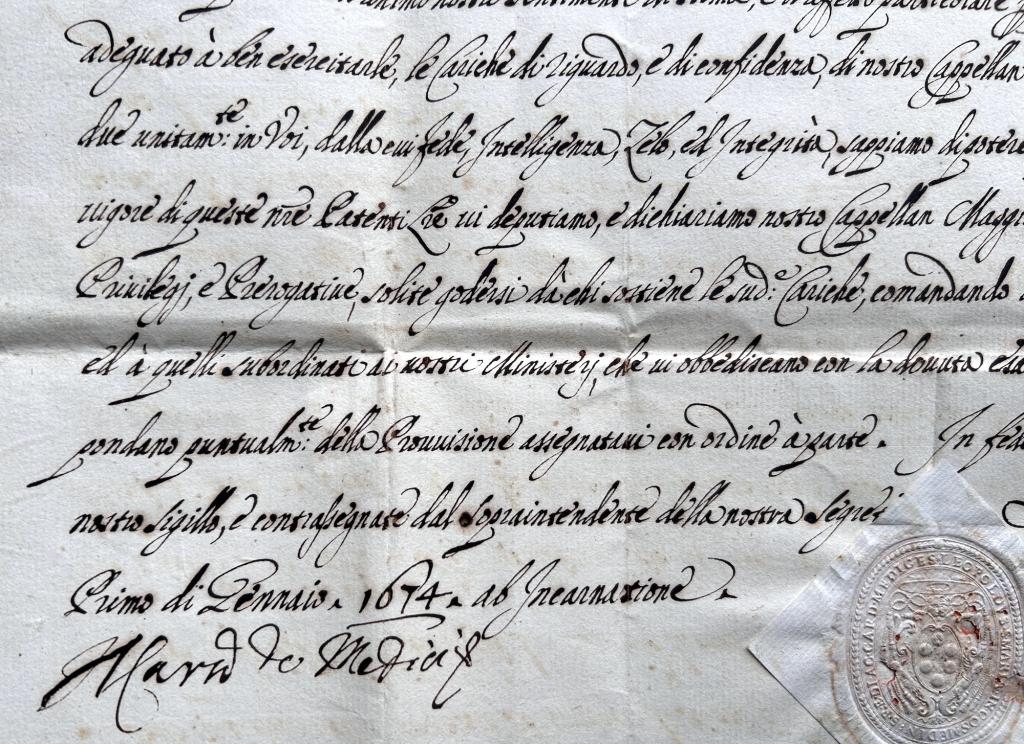 adeguato à ben esercitarle, le Cariche di riguardo, e di confidenza, di nostro Cappellan
due unitam:te in Voi, dalla cui fede, Intelligenza, Zelo, ed Integrità, sappiamo di potere
vigore di queste nre Patenti Lre vi deputiamo, e dichiariamo nostro Cappellan Maggi
Privilegj, e Prerogative, solite godersi dà chi sostiene le sud:e Cariche, comandando
ed à quelli subordinati ai nostri Ministerj, che vi obbediscano con la dovuta esa
pondano puntualm:te della Provvisione assegnatavi con ordine à parte. In fed
nostro sigillo, e contrassegnate dal sopraintendente della nostra segret
Primo di Gennaio. 1674. ab Incarnatione.
de Medici